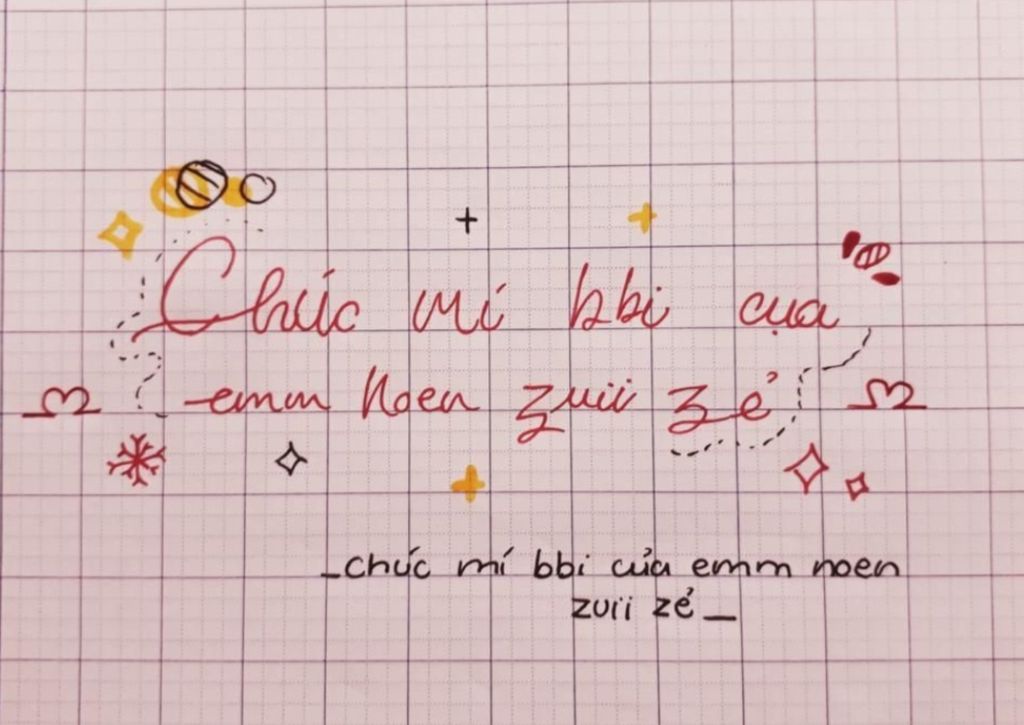 Chúc mí bbi cụa
emm noen zuii zẻ
_chúc mí bbi của emm noen
zuii zẻ_